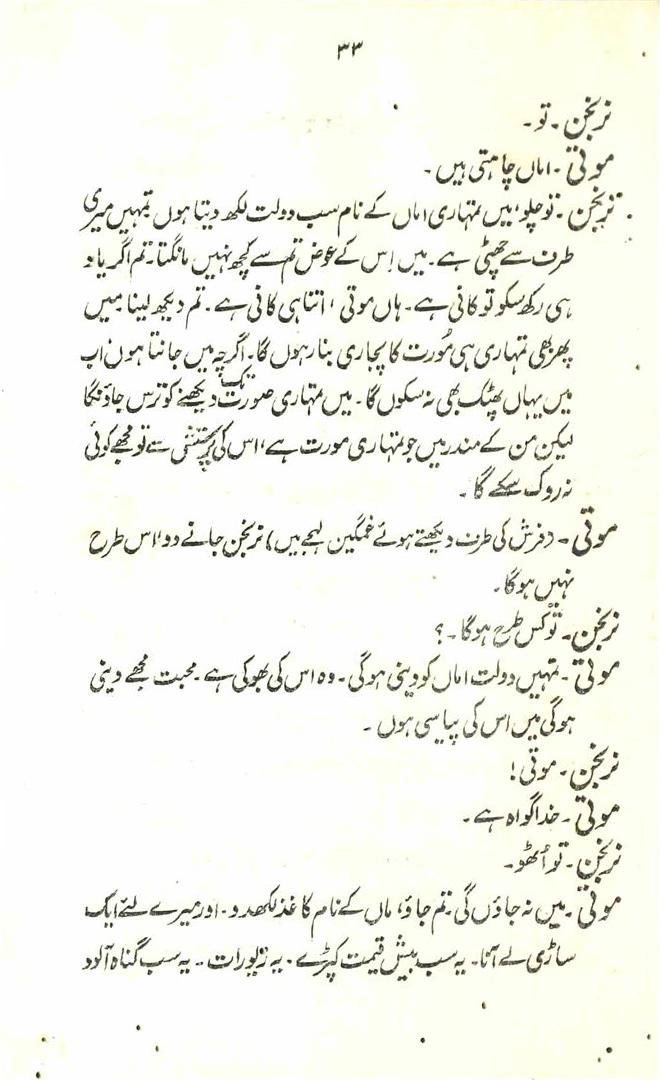 ۳۳
نرنجن ۔ تو ۔
موتی ۔ اماں چاہتی ہیں ۔
نرنجن ۔ تو چلو، میں تمہاری اماں کے نام سب دولت لکھ دیتا ہوں تمہیں میری
طرف سے چھٹی ہے ۔ میں اِس کے عوض تم سے کچھ نہیں مانگتا ۔ تم اگر یاد
ہی رکھ سکو تو کافی ہے ۔ ہاں موتی ، اتنا ہی کافی ہے ۔ تم دیکھ لینا میں
پھر بھی تمہاری ہی مُورت کا پجاری بنا رہوں گا ۔ اگرچہ میں جانتا ہوں اب
میں یہاں پھٹک بھی نہ سکوں گا ۔ میں تمہاری صورت تک دیکھنے کو ترس جاؤنگا
لیکن من کے مندر میں جو تمہاری مورت ہے، اس کی پرستش سے تو مجھے کوئی
نہ روک سکے گا ۔
موتی ۔ (فرش کی طرف دیکھتے ہوئے غمگین لہجے میں) نرنجن جانے دو، اس طرح
نہیں ہوگا ۔
نرنجن ۔ تو کس طرح ہوگا ۔ ؟
موتی ۔ تمہیں دولت اماں کو دینی ہوگی ۔ وہ اس کی بھوکی ہے ۔ محبت مجھے دینی
ہوگی میں اس کی پیاسی ہوں ۔
نرنجن ۔ موتی !
موتی ۔ خدا گواہ ہے ۔
نرنجن ۔ تو اُٹھو ۔
موتی ۔ میں نہ جاؤں گی ۔ تم جاؤ، ماں کے نام کاغذ لکھدو ۔ اور میرے لئے ایک
ساڑی لے آنا ۔ یہ سب بیش قیمت کپڑے ۔ یہ زیورات ۔ یہ سب گناہ آلود